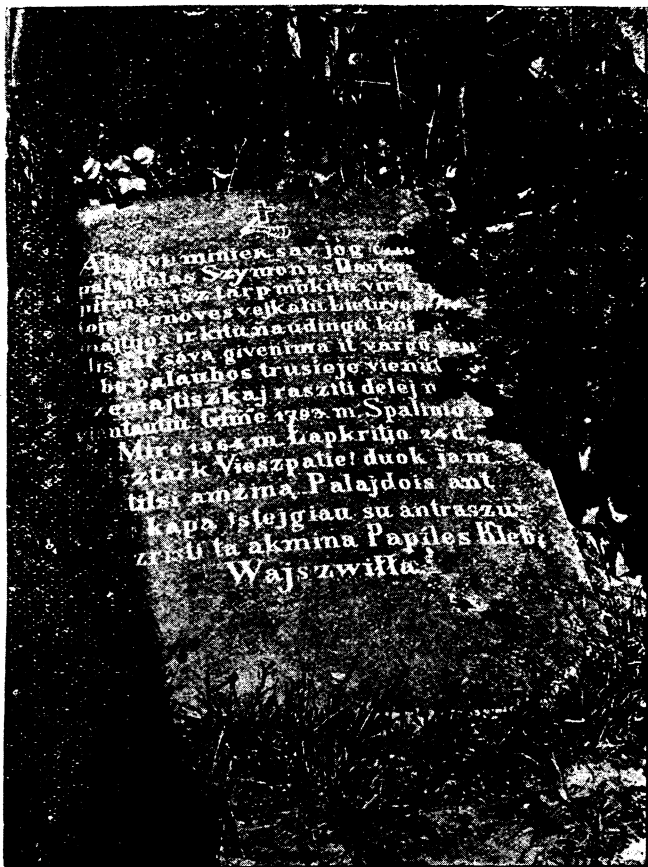 miniek sav jog
palajdotas Szymonas Davko
pirmas isz tarp mokitu viru
senoves vejkalu Lieturyos
majtijos ir kitu naudingu kni
sava givenima it vargo
be palaubos trusioje vienu
zemajtiszkaj rasziti delej
Gime 1793 m. Spalinio
Mire 1864 m. Lapkritio 24 d
Vieszpatie! duok jam
tilsi amžina Palajdois ant
kapa istejgiau su antraszu
ta akmina Papiles Kleb.
Wajszwiłła.